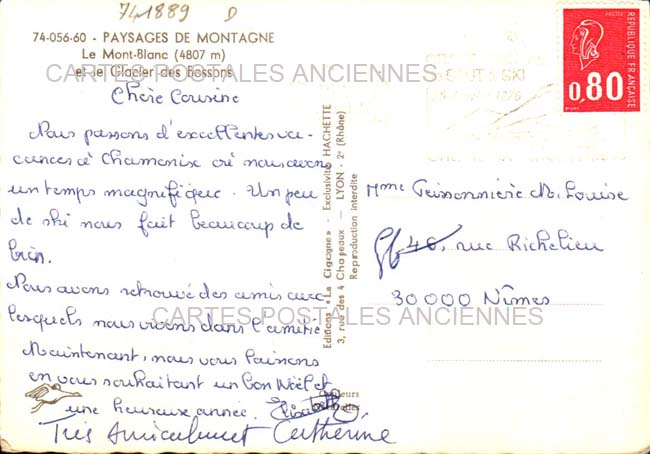 741889 D
74-056-60 - PAYSAGES DE MONTAGNE
Le Mont-Blanc (4807 m)
et le Glacier des Bossons
CARTES POSTALES ANCIENNES
Chère Cousine
Nous passons d'excellentes va-
cances à Chamonix où nous avons
un temps magnifique. Un peu
de ski nous fait beaucoup de
bien.
Nous avons retrouvé des amis avec
lesquels nous vivons dans l'amitié
Maintenant, nous vous laissons
en vous souhaitant un bon Noël et
une heureuse année. Elisabeth
Très Amicalement Catherine
Editions « La Cigogne » - Exclusivité HACHETTE
3, rue des 4 Chapeaux - LYON - 2e (Rhône)
Reproduction interdite
Couleurs
Naturelles
REPUBLIQUE FRANÇAISE
POSTES
0,80
SKI
Mme Teissonnière M. Louise
46, rue Richelieu
30000 Nîmes
CARTES POSTALES ANCIENNES